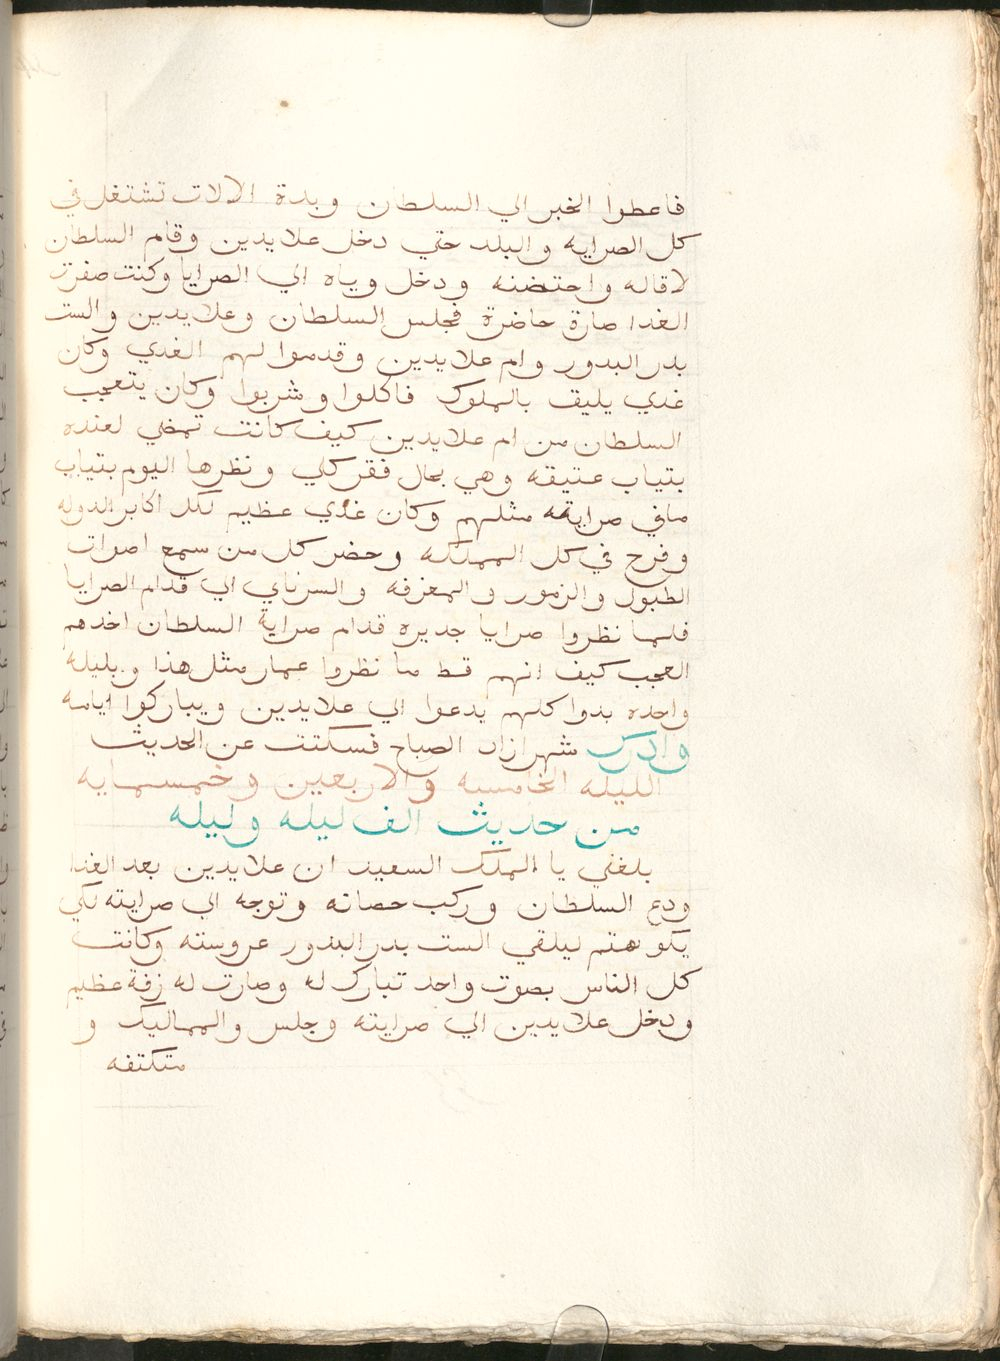 فاعطوا الخبر الي السلطان وبدة الالات تشتغل في
كل الصرايه والبلد حتي دخل علايدين وقام السلطان
لاقاله واحتضنه ودخل وياه الي الصرايا وكنت صفرت
الغدا صارة حاضرة فجلس السلطان وعلايدين والست
بدر البدور وام علايدين وقدموا لهم الغدي وكان
غدي يليق بالملوك فاكلوا وشربوا وكان يتعجب
السلطان من ام علايدين كيف كانت تمضي لعنده
بتياب عتيقه وهي بحال فقر كلي ونظرها اليوم بتياب
مافي صرايته مثلهم وكان غدي عظيم لكل اكابر الدوله
وفرح في كل المملكه وحضر كل من سمع اصوات
الطبول والزمور والمعزفه والسرناي الي قدام الصرايا
فلما نظروا صرايا جديره قدام صراية السلطان اخدهم
العجب كيف انهم قط ما نظروا عمار مثل هذا وبليله
واحده بدوا كلهم يدعوا الي علايدين ويباركوا ايامه
وادرك شهرازاد الصباح فسكتت عن الحديث
الليله الخامسه والاربعين وخمسمايه
من حديث الف ليله وليله
بلغني يا الملك السعيد ان علايدين بعد الغدا
ودع السلطان وركب حصانه وتوجه الي صرايته لكي
يكو هتم ليلقي الست بدر البدور عروسته وكانت
كل الناس بصوت واحد تبارك له وصارت له زفة عظيم
ودخل علايدين الي صرايته وجلس والمماليك و
متكتفه